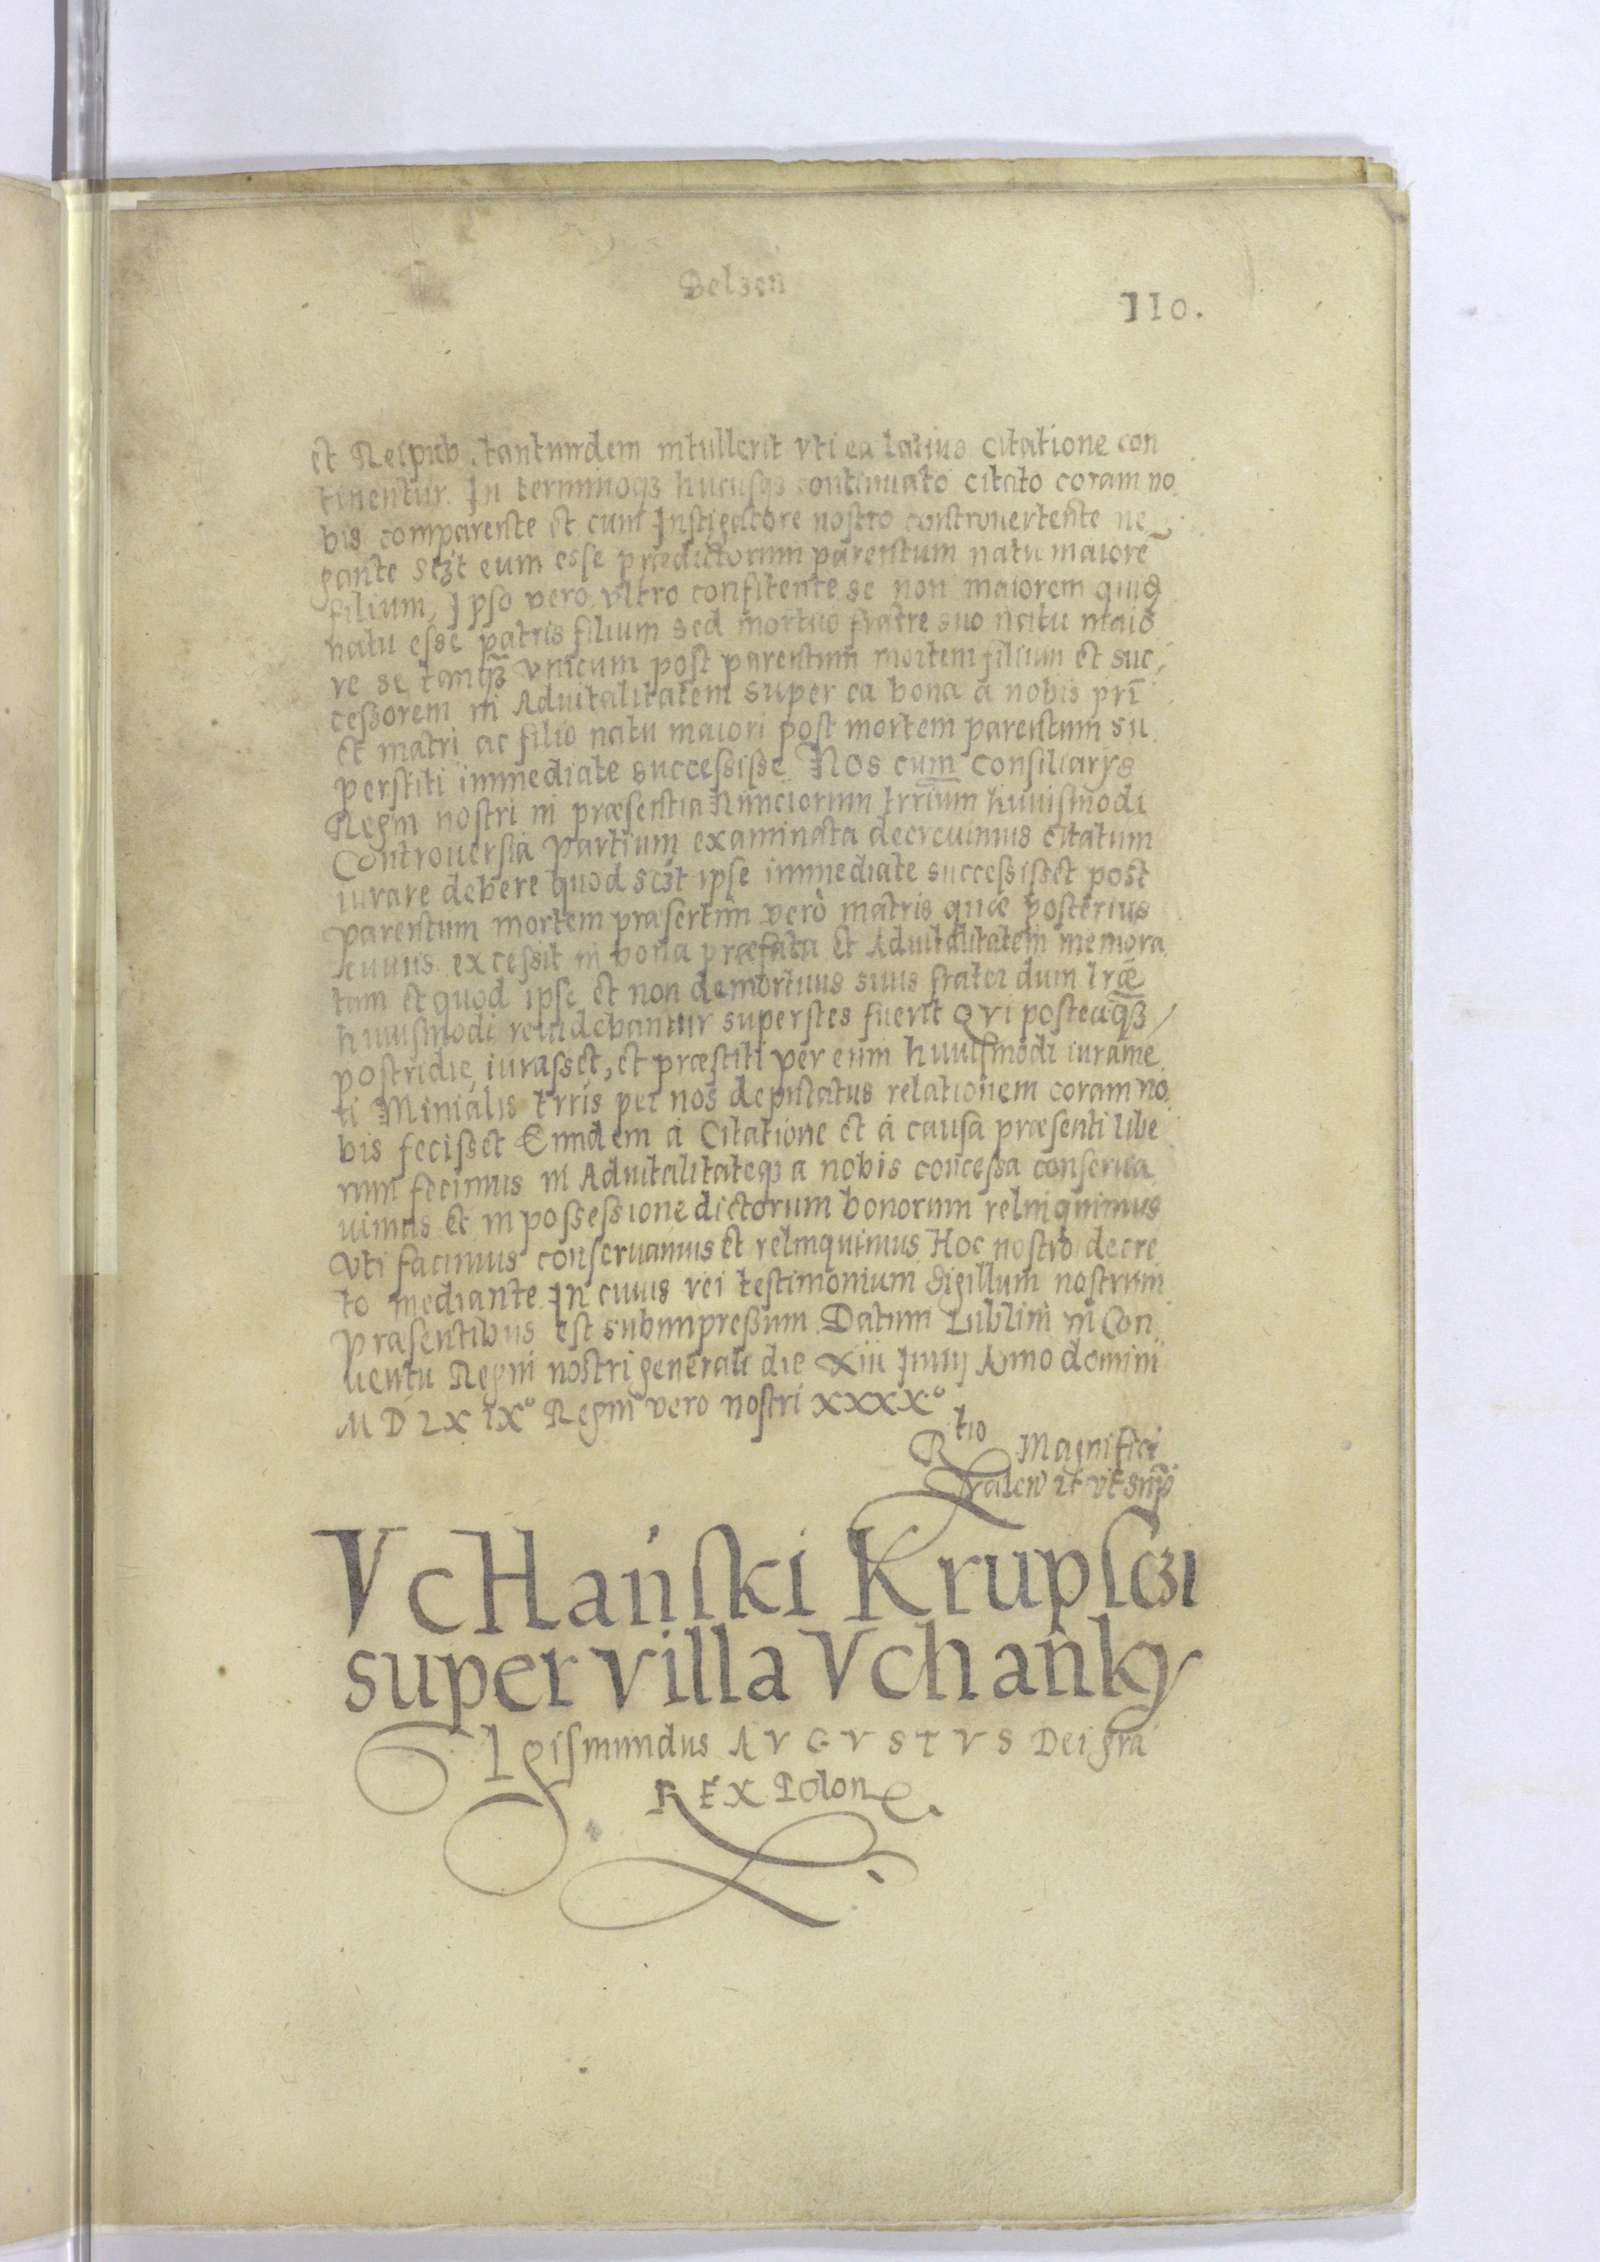 Belzen
110.
et Reipub. tantumdem intullerit vti ea latius citatione con
tinentur. In terminoqʒ hucusqʒ continuato citato coram no
bis comparente et cum Instigatore nostro controuertente ne
gante scʒt eum esse prædictorum parentum natu maiorē
filium, Ipso vero vltro confitente se non maiorem quiđ
natu esse patris filium sed mortuo fratre suo natu maio
re se tanqʒ vnicum post parentum mortem filium et suc,
ceßorem in Aduitalitatem super ea bona a nobis pri̅
et matri ac filio natu maiori post mortem parentum su
perstiti immediate succeßiße. Nos cum Consiliarys
Regni nostri in præsentia Nunciorum trrium huiusmodi
Controuersia partium examinata decreuimus citatum
iurare debere quod scʒt ipse immediate succeßißet post
parentum mortem præsertim verò matris quæ posterius
cuius exceßit in bona præfata et Aduitalitatem memora
tam et quod ipse et non demortuus suus frater dum lræ
huiusmodi reddebantur superstes fuerit Qvi posteaqʒ
postridie iuraßet, et præstiti per eum huiusmodi iuramē
ti Minialis trris per nos deputatus relationem coram no,
bis fecißet Eundem á Citatione et á causa præsenti libe
rum fecimus in Aduitalitateqʒ a nobis conceßa conserua
uimus et in poßeßione dictorum bonorum relinquimus
Vti facimus conseruamus et relinquimus Hoc nostro decre
to mediante. In cuius rei testimonium Sigillum nostrum
præsentibus est subimpreßum. Datum Lublini in Con
uentu Regni nostri generali die xiii Iunij Anno domini
M D LX IX° Regni vero nostri xxxx°
Rtio Magnifici
Valen zt vt sup̄
VcHański Krupsczi
super villa Vchańky
SIgismundus AVGVSTVS Dei gra
REX Polonę.